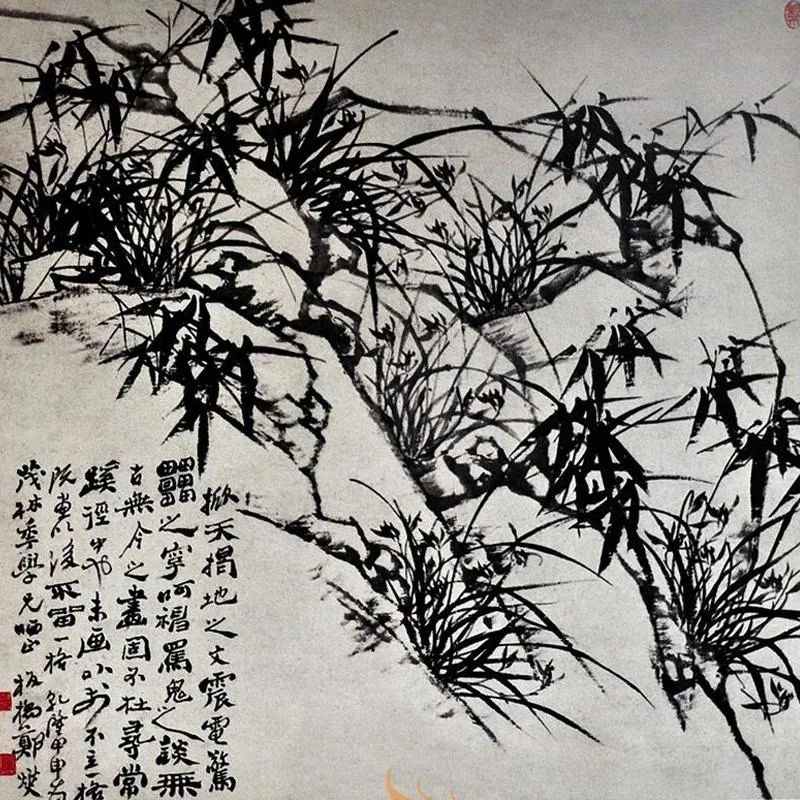 掀天揭地之文震電驚
靁之字呵神罵鬼之談無
古無今之畫固不在尋常
蹊徑中也未画以前不立一格
既画以後不留一格乾隆甲申為
茂林秊學兄哂正板橋鄭燮